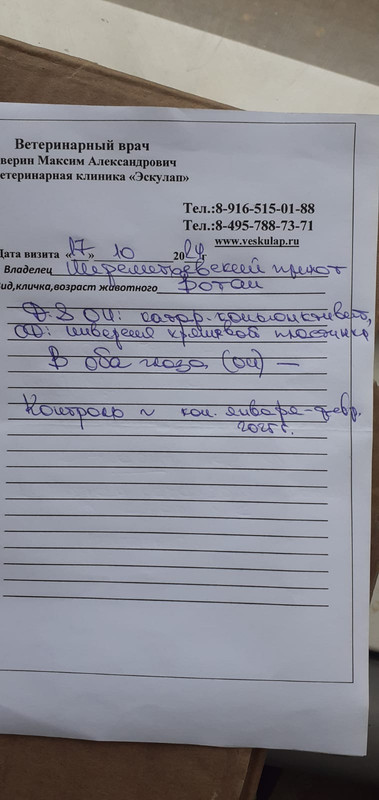 Ветеринарный врач
верин Максим Александрович
етеринарная клиника «Эскулап»
Тел.:8-916-515-01-88
Тел.:8-495-788-73-71
www.veskulap.ru
Дата визита «17» 10 2024г
Владелец Шереметьевский приют
ид,кличка,возраст животного Ротан
D.S OU: катар. конъюнктивит,
OD: инверсия хрящевой пластинки
В оба глаза (OU) —
Контроль ~ кон. января-февр.
2025г.